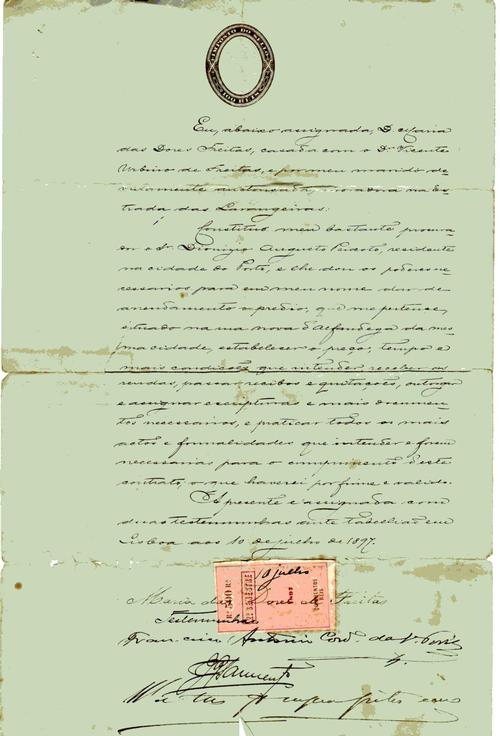 IMPOSTO DO SELLO
100 RÉIS
Eu, abaixo assignada, D. Maria
das Dores Freitas, casada com o Dr. Vicente
Urbino de Freitas, e por meu marido de-
vidamente auctorisada, moradora na Es-
trada das Larangeiras:
Constituo meu bastante procura-
dor o Sr. Dionizio Augusto Peixoto, residente
na cidade do Porto, e lhe dou os poderes ne-
cessarios para em meu nome dar de
arrendamento o predio, que me pertence,
situado na rua nova d'Alfandega da mes-
ma cidade, estabelecer o preço, tempo e
mais condições que intender receber as
rendas, passar recibos e quitações, outorgar
e assignar escripturas e mais documen-
tos necessarios, e praticar todos os mais
actos e formalidades que intender e forem
necessarias para o cumprimento d'este
contrato, o que haverei por firme e valido.
presente e assignada com
duas testemunhas ante tabellião em
Lisboa aos 10 de julho de 1897.
10 julho
500 Rs
Maria das Dores de Freitas
Testemunhas
Francisco Antonio da
J. Sarmento